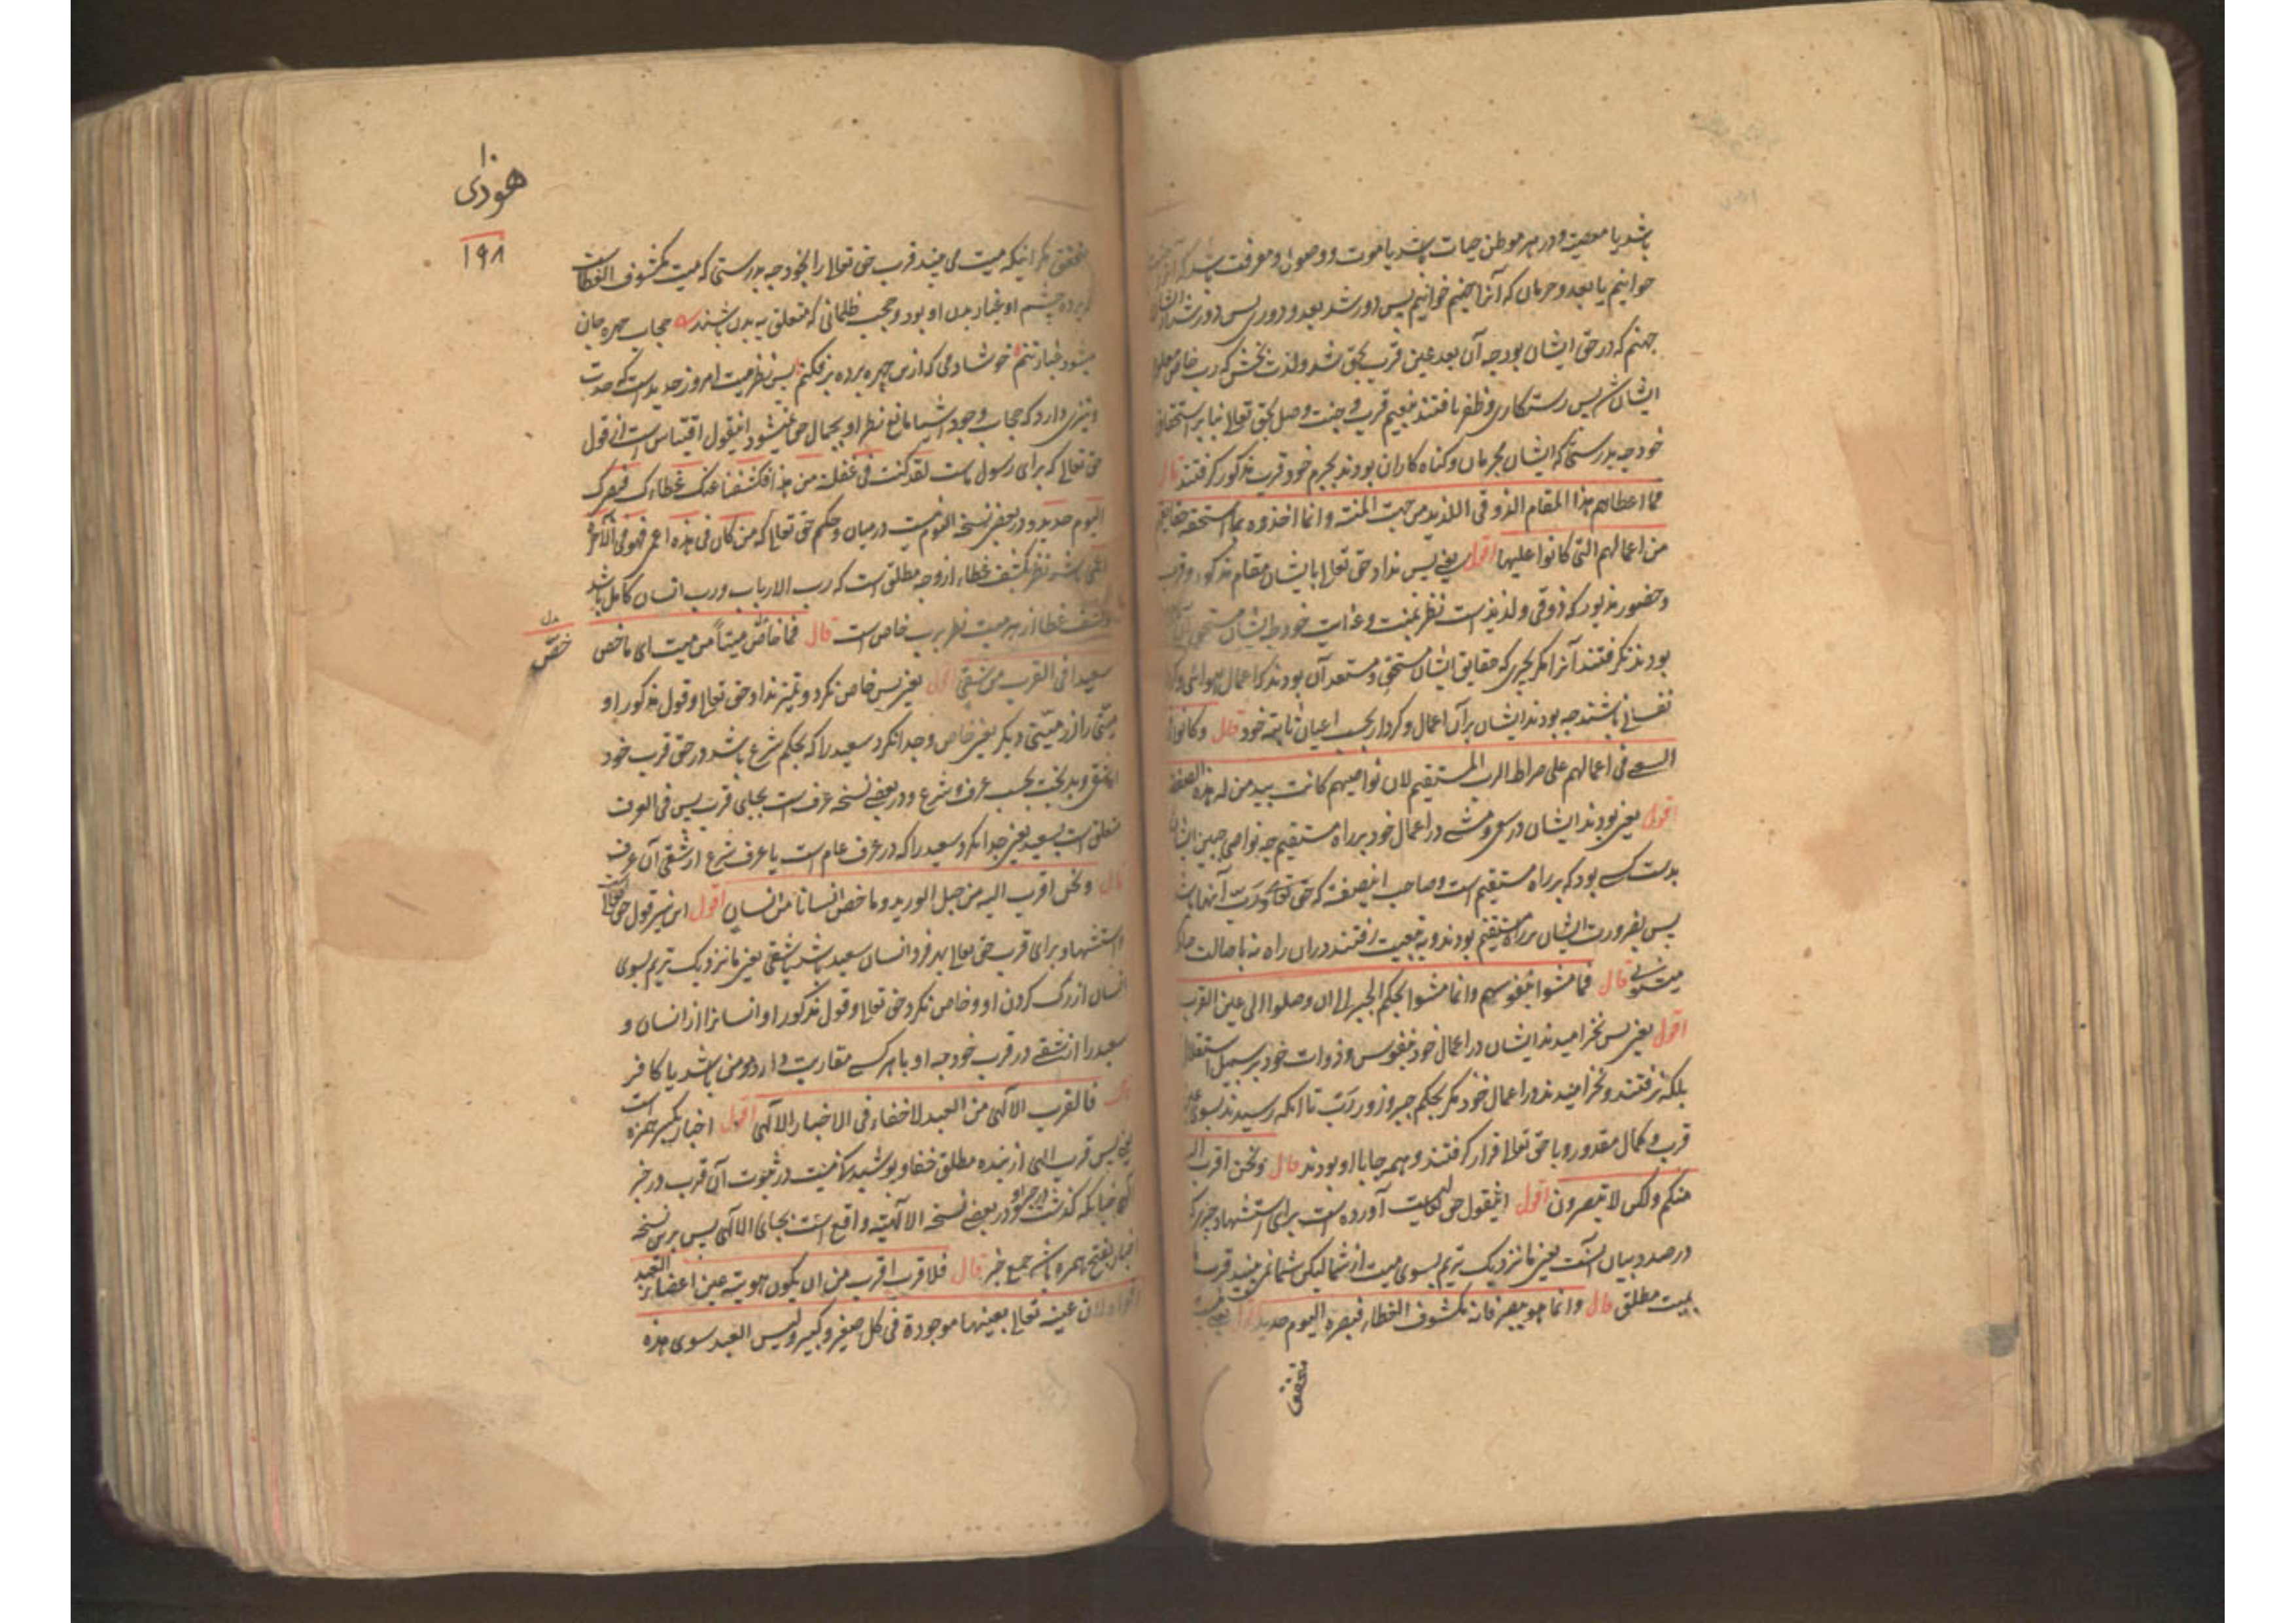 باشد یا معصیت و در هر موطن حیات باشد یا موت و وصول و معرفت باشد که آنرا
خوانیم یا بعد و حرمان که آنرا جهنم خوانیم پس دور شد بعد و دوری پس دور شد از ایشان
جهنم که در حق ایشان بود چه آن بعد عین قرب بحق شد ولذت بخش که رب خاص
ایشان پس رستکاری و ظفر یافتند بنعیم قرب و جنت وصل بحق تعالی بنابر استحقاق
خود چه بدرستی که ایشان مجرمان و کناه کاران بودند بجرم خود قرب مذکور کرفتند قال
فما اعطاهم هذا المقام الذوقی اللذیذ من جهت المنة وانما اخذوه بما استحقته حقایقهم
من اعمالهم التی کانوا علیها اقول یعنی پس نداد حق تعالی بایشان مقام مذکور و قرب
و حضور مذبور که ذوقی و لذیذ است نظر بمنت و عنایت خود بلکه ایشان مستحق
بودند نکرفتند آنرا مکر بچیزی که حقایق ایشان مستحق و مستعد آن بودند که اعمال هوائی و
نفسانی باشند چه بودند ایشان بر آن اعمال و کردار بحسب اعیان ثابته خود قال وکانوا
السعی فی اعمالهم علی صراط الرب المستقیم لان نواصیهم کانت بید من له هذه الصفة
اقول یعنی بودند ایشان در سعی و مشی در اعمال خود بر راه مستقیم چه نواصی جبین ایشان
بدست کسی بود که بر راه مستقیم است و صاحب اینصفة که حق تعالی و رب آنها باشد
پس بضرورت ایشان بر راه مستقیم بودند و به تبعیت رفتند دران راه نه باصالت
قال فما مشوا بنفوسهم وانما مشوا بحکم الجبر الی ان وصلوا الی عین القرب
اقول یعنی پس نخرامیدند ایشان در اعمال خود بنفوس و ذوات خود بر سبیل استقلال
بلکه نرفتند و نخرامیدند در اعمال خود مکر بحکم جبر و زور رب تا آنکه رسیدند بسوی عین
قرب و کمال مقدور و با حق تعالی قرار کرفتند و هر جا با او بودند قال ونحن اقرب الیه
منکم ولکن لا تبصرون اقول اینقول حق تعالی آورده است برای استشهاد چیزی که
در صدد بیان آنست یعنی ما نزدیک تریم بسوی میت از شما لیکن شما نمی بینید قرب
بمیت مطلق قال وانما هو یبصر فانه مکشوف الغطاء فبصره الیوم حدید اقول یعنی نیست
هودی
۱۹۸
متحقق مکر اینکه میت می بیند قرب حق تعالی را بخود چه بدرستی که میت مکشوف الغطاست
و پرده چشم او غبار بدن او بود و حجب ظلمانی که متعلق به بدن باشند حجاب چهره جان
میشود غبار تنم خوشا دمی که ازین چهره پرده برفکنم پس نظر میت امروز حدید است که حدت
و تیزی دارد که حجاب وجود اشیا مانع نظر او بجمال حق نمیشود اینقول اقتباس است از قول
حق تعالی که برای رسول ماست لقد کنت فی غفلة من هذا فکشفنا عنک غطاءک فبصرک
الیوم حدید و در بعض نسخه الیوم نیست درمیان و حکم حق تعالی که من کان فی هذه اعمی فهو فی الآخرة
اعمی باشد نظر بکشف غطاء از وجه مطلق است که رب الارباب و رب انسان کامل باشد
و کشف غطا از هر میت نظر برب خاص است قال فما خاص میتاً من میت ای ما خص
خص
سعیدا فی القرب من شقی اقول یعنی پس خاص نکرد و تمیز نداد حق تعالی و قول مذکور او
میتی را از میتی دیکر یعنی خاص و جدا نکرد سعید را که بحکم شرع باشد در حق قرب خود
از شقی و بدبخت بحسب عرف و شرع و در بعض نسخه عرف است بجای قرب پس فی العرف
متعلق است بسعید یعنی جدا نکرد سعید را که در عرف عام است یا عرف شرع از شقی آن عرف
قال ونحن اقرب الیه من حبل الورید وما خص انسانا من انسان اقول این نیز قول حق تعالی
استشهاد برای قرب حق تعالی بهر فرد انسان سعید باشد یا شقی یعنی ما نزدیک تریم بسوی
انسان از رک کردن او و خاص نکرد حق تعالی و قول مذکور او انسانرا از انسان و
سعید را از شقی در قرب خود چه او با هر کسی مقاربت دارد مومن باشد یا کافر
قال فالقرب الالهی من العبد لا خفاء فی الاخبار الالهی اقول اخبار بکسر همزه است
یعنی پس قرب الهی از بنده مطلق خفا و پوشیدکی نیست در ثبوت آن قرب در خبر
الهی چنانکه کذشت و در بعض نسخه الالهیة واقع است بجای الالهی پس برین نسخه
اخبار بفتح همزه باشد جمع خبر قال فلا قرب اقرب من ان یکون هویته عین اعضاء العبد
وقواه لان عینه تعالی بعینها موجودة فی کل صغیر وکبیر ولیس العبد سوی هذه